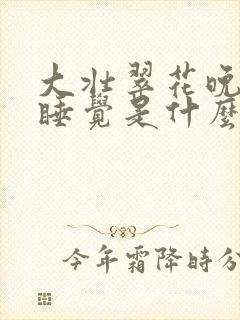 大壮翠花晚
睡覺是什麼
今年霜降時分